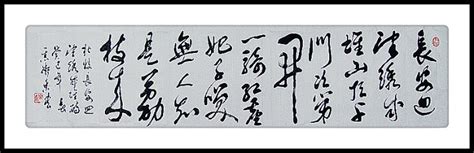 長安回
望绣成
堆山頂千
門次第
開
一騎紅塵
妃子笑
無人知
是荔
枝來
杜牧長安回
癸巳年